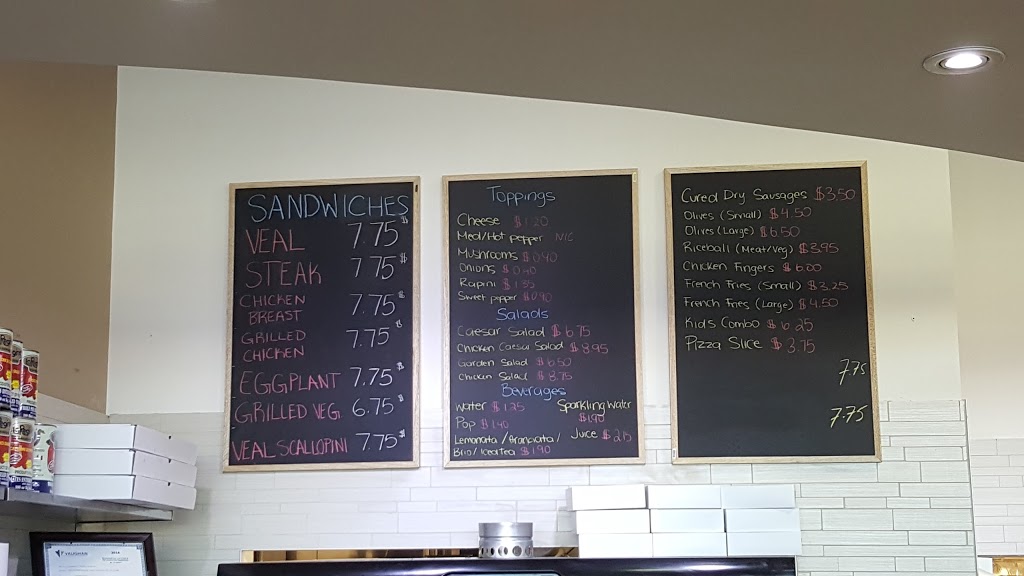 SANDWICHES
VEAL 7.75$
STEAK 7.75$
CHICKEN
BREAST 7.75$
GRILLED
CHICKEN 7.75$
EGGPLANT 7.75$
GRILLED VEG. 6.75$
VEAL SCALLOPINI 7.75$
Toppings
Cheese $1.20
Med/Hot pepper N/C
Mushrooms $0.90
Onions
Rapini
Sweet pepper $0.90
Salads
Caesar Salad $6.75
Chicken Caesar Salad $8.95
Garden Salad $6.50
Chicken Salad $8.75
Beverages
Water $1.25 Sparkling Water
Pop $1.40 $1.90
Lemonata/Aranciata/ Juice
Brio/Icetea $1.90
Cured Dry Sausages $3.50
Olives (Small) $4.50
Olives (Large) $6.50
Riceball (Meat/Veg) $3.95
Chicken Fingers $6.00
French Fries (Small) $3.25
French Fries (Large) $4.50
Kids Combo $6.25
Pizza Slice $3.75
7.75
7.75
VAUGHAN